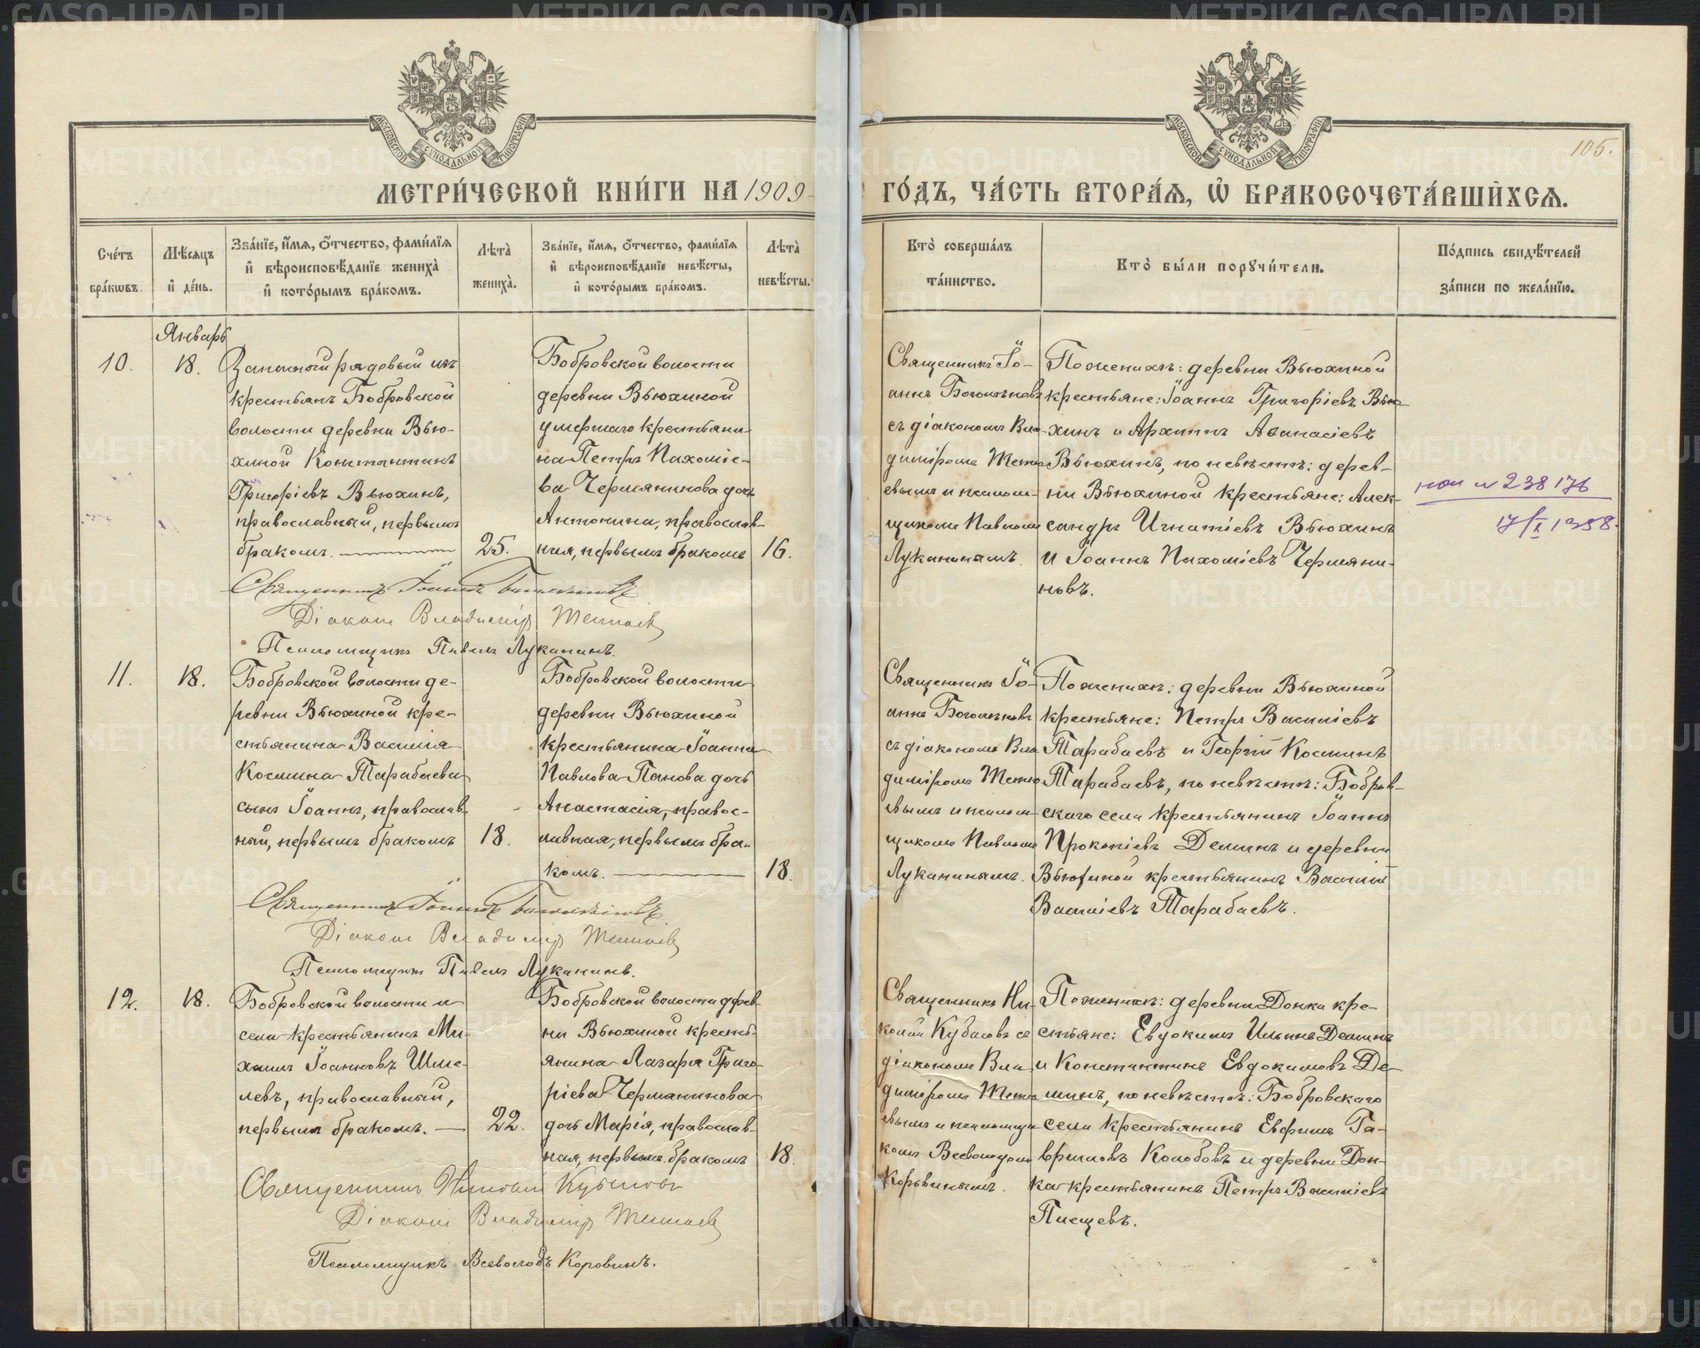 МЕТРИ́ЧЕСКОЙ КНИ́ГИ НА 1909
ГО́ДЪ, ЧА́СТЬ ВТОРА́Ѧ, Ѽ БРАКОСОЧЕТА́ВШИХСѦ.
105.
Сче́тъ бра́кѡвъ.
Мѣ́сяцъ и҆ де́нь.
Зва́нїе, и҆́мѧ, ѻ҆́тчество, фами́лїѧ и҆ вѣроисповѣ́данїе жениха̀ и҆ кото́рымъ бра́комъ.
Лѣта̀ жениха̀.
Зва́нїе, и҆́мѧ, ѻ҆́тчество, фами́лїѧ и҆ вѣроисповѣ́данїе невѣ́сты, и҆ кото́рымъ бра́комъ.
Лѣта̀ невѣ́сты.
Кто̀ соверша́лъ та́инство.
Кто̀ бы́ли порꙋчи́тели.
По́дпись свидѣ́телей за́писи по жела́нїю.
Январь
10.
18.
Запасной рядовый изъ
крестьянъ Бобровской
волости деревни Вью-
хиной Константинъ
Григоріевъ Вьюхинъ,
православный, первымъ
бракомъ.
25.
Бобровской волости
деревни Вьюхиной
умершаго крестьяни-
на Петра Пахоміе-
ва Чермянинова дочь
Антонина, православ-
ная, первымъ бракомъ
16.
Священникъ Іо-
аннъ Боголѣповъ
съ діакономъ Вла-
диміромъ Тете-
евымъ и псалом-
щикомъ Павломъ
Луканинымъ.
По женихѣ: деревни Вьюхиной
крестьяне: Іоаннъ Григоріевъ Вью-
хинъ и Архиппъ Аѳанасіевъ
Вьюхинъ, по невѣстѣ: дерев-
ни Вьюхиной крестьяне: Алек-
сандръ Игнатіевъ Вьюхинъ
и Іоаннъ Пахоміевъ Чермяни-
новъ.
238176
17/I 1958.
Священникъ Іоаннъ Боголѣповъ
Діаконъ Владиміръ
Псаломщикъ Павелъ Луканинъ.
11.
18.
Бобровской волости де-
ревни Вьюхиной кре-
стьянина Василія
Космина Тарабаева
сынъ Іоаннъ, православ-
ный, первымъ бракомъ
18.
Бобровской волости
деревни Вьюхиной
крестьянина Іоанна
Павлова Панова дочь
Анастасія, правос-
лавная, первымъ бра-
комъ.
18.
Священникъ Іо-
аннъ Боголѣповъ
съ діакономъ Вла-
диміромъ Тете-
евымъ и псалом-
щикомъ Павломъ
Луканинымъ.
По женихѣ: деревни Вьюхиной
крестьяне: Петръ Василіевъ
Тарабаевъ и Георгій Косминъ
Тарабаевъ, по невѣстѣ: Бобров-
скаго села крестьянинъ Іоаннъ
Прокопіевъ Деминъ и деревни
Вьюхиной крестьянинъ Василій
Василіевъ Тарабаевъ.
Священникъ Іоаннъ Боголѣповъ
Діаконъ Владиміръ
Псаломщикъ Павелъ Луканинъ.
12.
18.
Бобровской волости и
села крестьянинъ Ми-
хаилъ Іоанновъ Шме-
левъ, православный,
первымъ бракомъ.
22.
Бобровской волости дерев-
ни Вьюхиной кресть-
янина Лазаря Григо-
ріева Чермянинова
дочь Марія, православ-
ная, первымъ бракомъ
18.
Священникъ Ни-
колай Кубасовъ съ
діакономъ Вла-
диміромъ Тете-
евымъ и псаломщи-
комъ Всеволодомъ
Коровинымъ.
По женихѣ: деревни Донки кре-
стьяне: Евдокимъ Ильинъ Деминъ
и Константинъ Евдокимовъ Де-
минъ, по невѣстѣ: Бобровскаго
села крестьянинъ Евфимъ Га-
вриловъ Колобовъ и деревни Дон-
ка крестьянинъ Петръ Василіевъ
Пищевъ.
Священникъ Николай Кубасовъ
Діаконъ Владиміръ
Псаломщикъ Всеволодъ Коровинъ.
METRIKI.GASO-URAL.RU